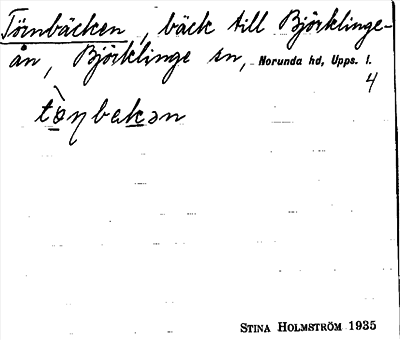 Törnbäcken, bäck till Björklinge-
ån, Björklinge sn, Norunda hd, Upps. l.
4
tö̀ηbekən
STINA HOLMSTRÖM 1935